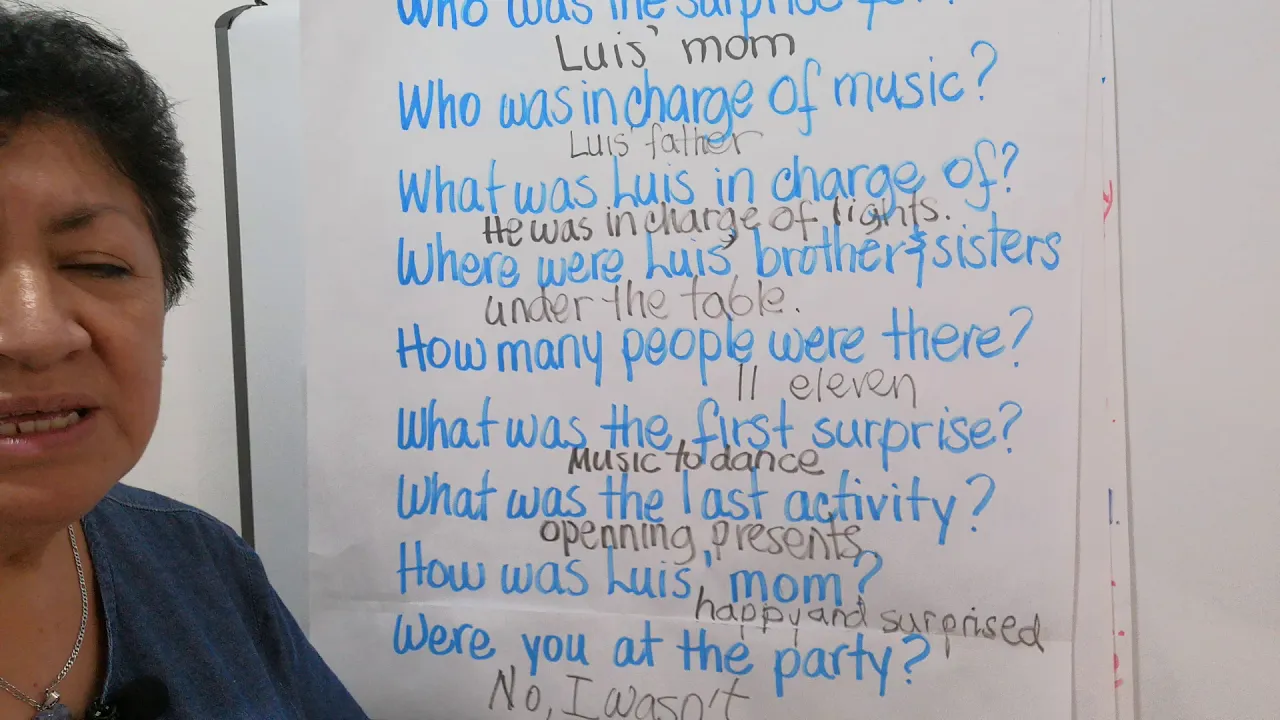 Who was the surprise for?
Luis' mom
Who was in charge of music?
Luis' father
What was Luis in charge of?
He was in charge of lights.
Where were Luis' brother & sisters
under the table.
How many people were there?
11 eleven
What was the first surprise?
Music to dance
What was the last activity?
openning presents
How was Luis' mom?
happy and surprised
Were you at the party?
No, I wasn't